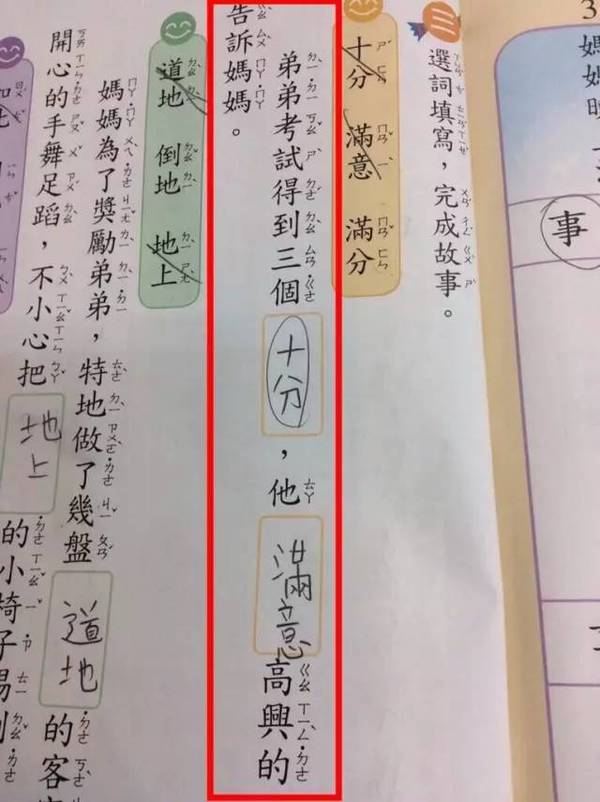 3
事
三
選詞填寫，完成故事。
十分 滿意 滿分
弟弟考試得到三個十分，他滿意高興的
告訴媽媽。
道地 倒地 地上
媽媽為了獎勵弟弟，特地做了幾盤道地的客
開心的手舞足蹈，不小心把地上的小椅子踢